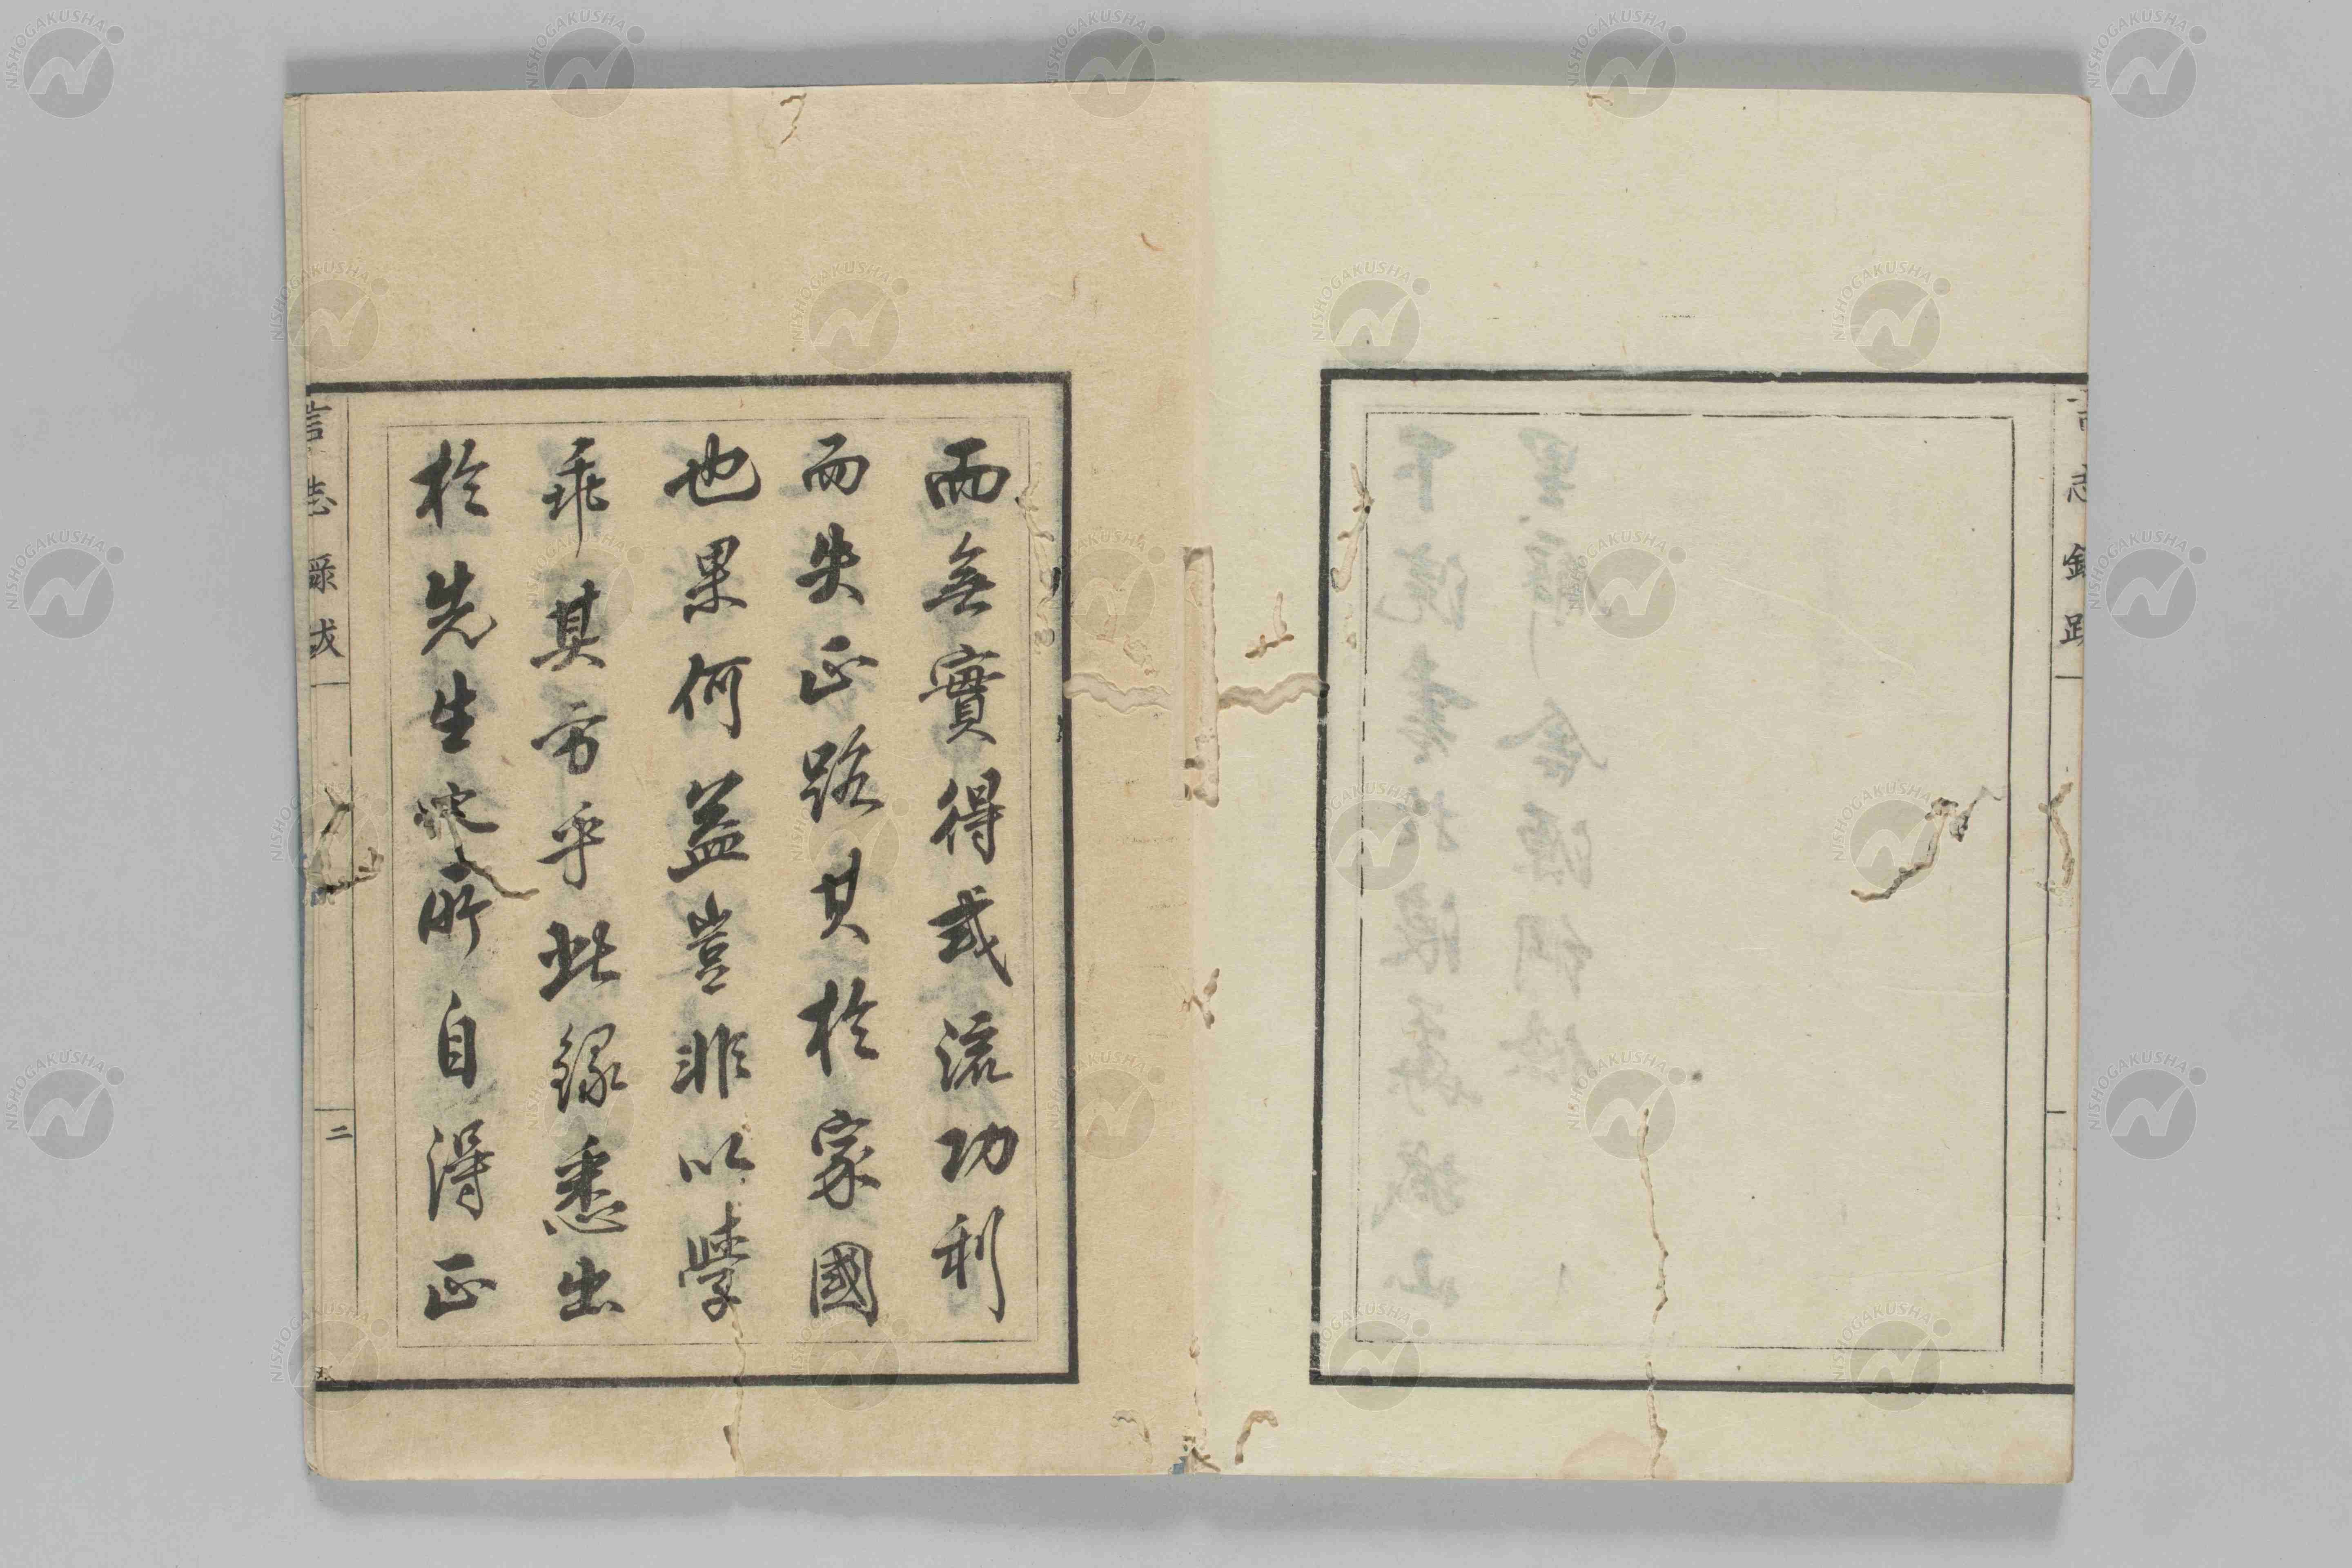 言志録跋
而無實得或流功利
而失正路其於家國
也果何益豈非以學
乖其方乎此錄悉出
於先生 所自得正
言志录跋
二
NISHOGAKUSHA